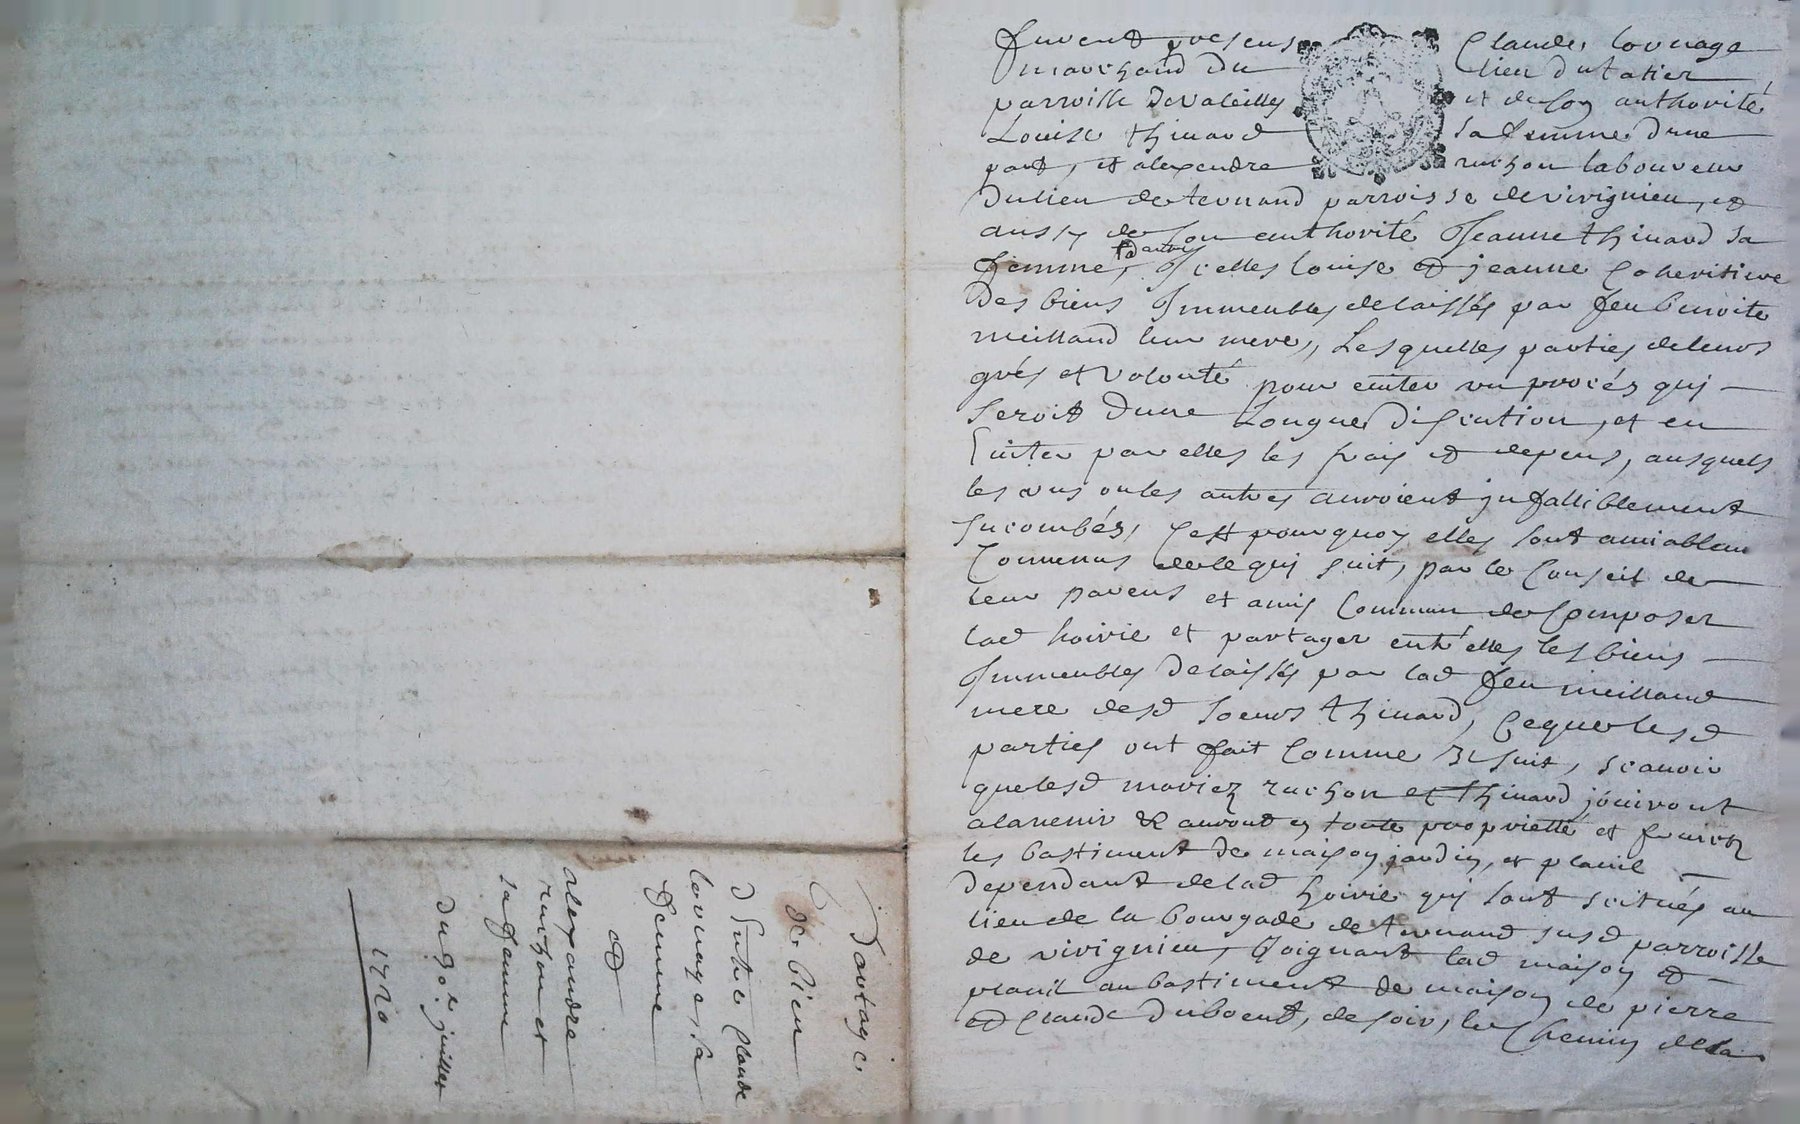 Furent presens Claude lovnage
marchand du lieu dutatier
parroisse de valeilles et de son authorité
Louise thinard sa femme d'une
part, et alexendre ruchon laboureur
du lieu de ternand parroisse de virignieu, et
aussy de son authorité Jeanne thinard sa
femme, Icelles louise et jeanne coheritiere
des biens Immeubles delaissés par feu benoite
meilland leur mere, Lesquelles parties de leurs
grés et volonté pour euiter vn procés quj
seroit dune Longue discution, et en
Euiter par elles les frais et depens, ausquels
les vns ou les autres auroient jnfalliblement
sucombés, Cest pourquoy elles sont amiablem
Conuenus de ce quj suit, par le Conseil de
leur parens et amis Commun de Composer
lad hoirie et partager entr'elles les biens
Immeubles delaissés par lad feu meilland
mere desd soeurs thinard, Ce que lesd
parties ont fait Comme sensuit, scauoir
que lesd mariez ruchon et thinard jouiront
alauenir & auront en toute proprietté et fruicts
les bastiment de maison jardin, et plauil
dependant de lad hoirie quj sont scitués au
lieu de la bourgade de ternand susd parroisse
de virignieu, Joignant lad maison et
plauil au bastiment de maison de pierre
et Claude duboeuf, de soir, le Chemin de la
Partage
de bien
d'Entre Claude
lovnage, sa
femme
et
alexandre
ruchon et
sa femme
du 30e juillet
1720